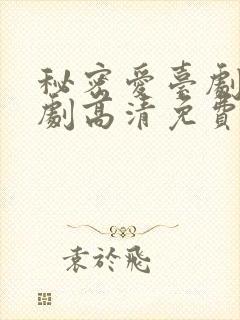 秘密愛臺劇
劇高清免費
袁於飛